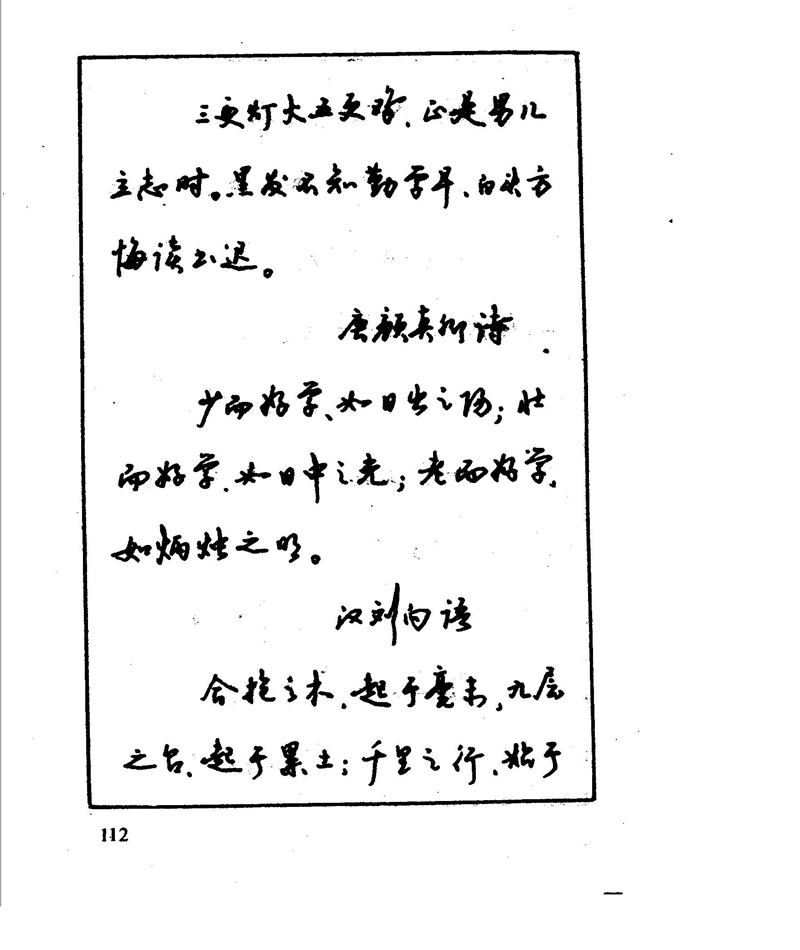 三更灯火五更鸡,正是男儿
立志时。黑发不知勤学早,白头方
悔读书迟。
唐颜真卿诗
少而好学,如日出之阳;壮
而好学,如日中之光;老而好学,
如炳烛之明。
汉刘向语
合抱之木,起于毫末,九层
之台,起于累土;千里之行,始于
112